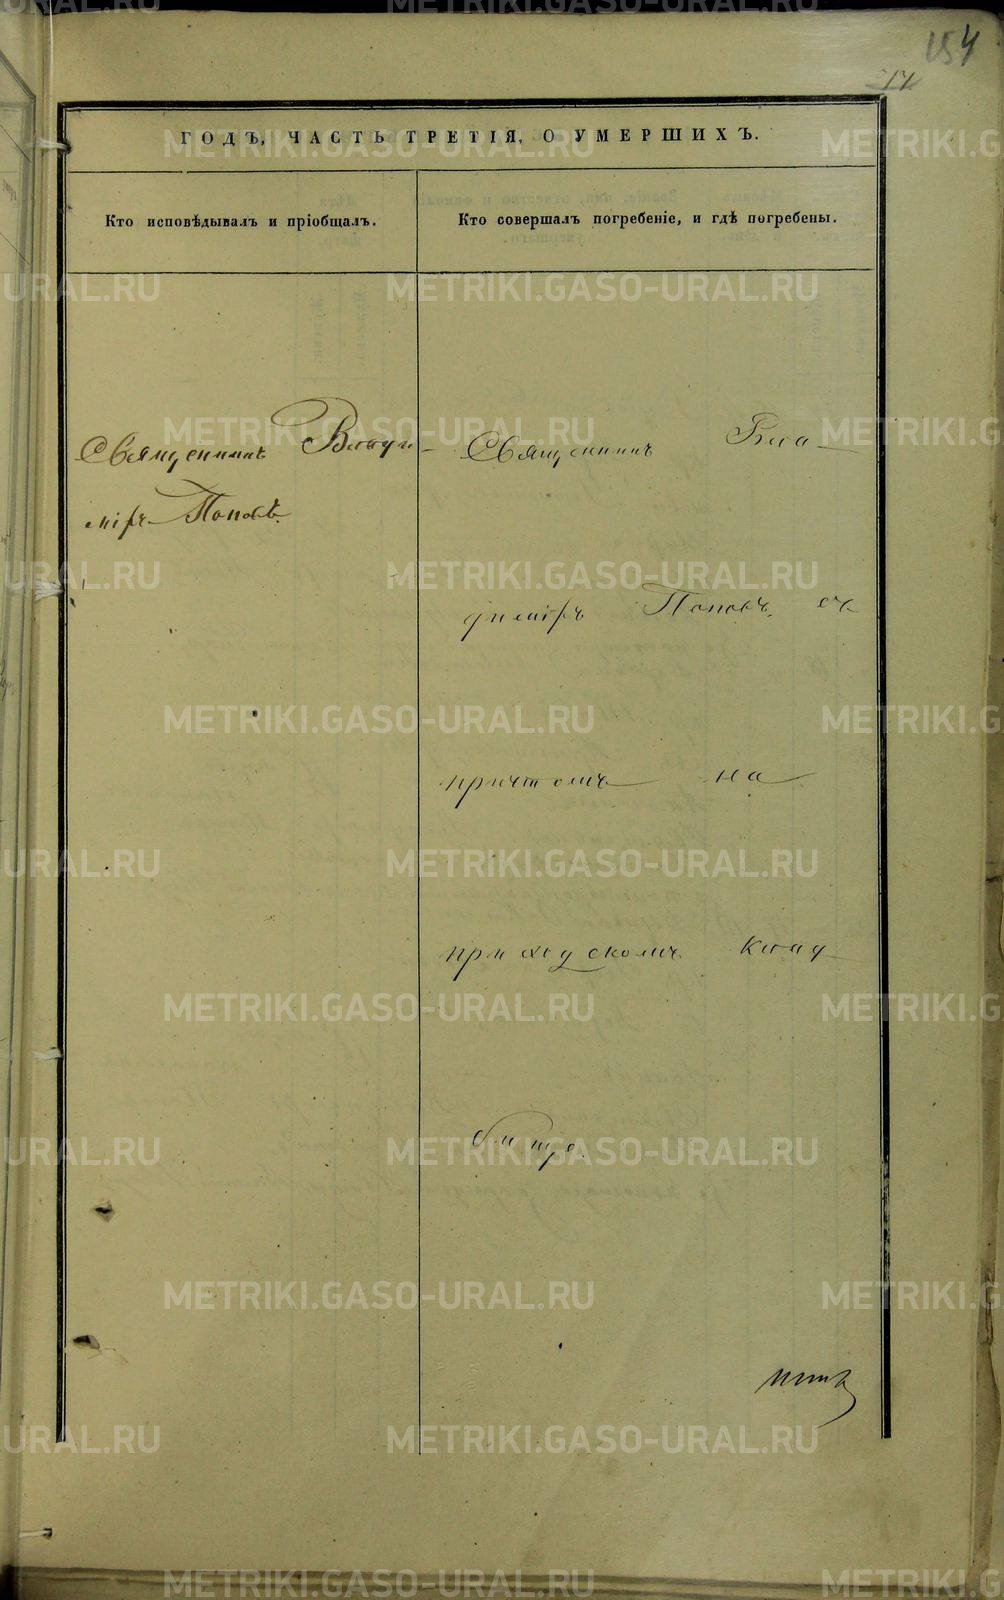 154
17
ГОДЪ, ЧАСТЬ ТРЕТІЯ, О УМЕРШИХЪ.
Кто исповѣдывалъ и пріобщалъ.
Кто совершалъ погребеніе, и гдѣ погребены.
Священникъ Влади-
міръ Поповъ.
Священникъ Вла-
диміръ Поповъ съ
причтомъ на
приходскомъ клад-
бищѣ.
METRIKI.GASO-URAL.RU